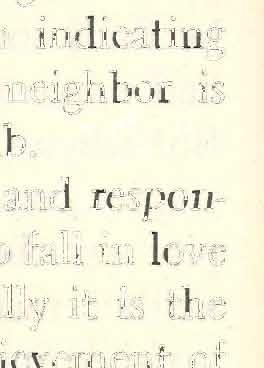 indicating
neighbor is
b.
and respon-
o fall in love
lly it is the
ievement of